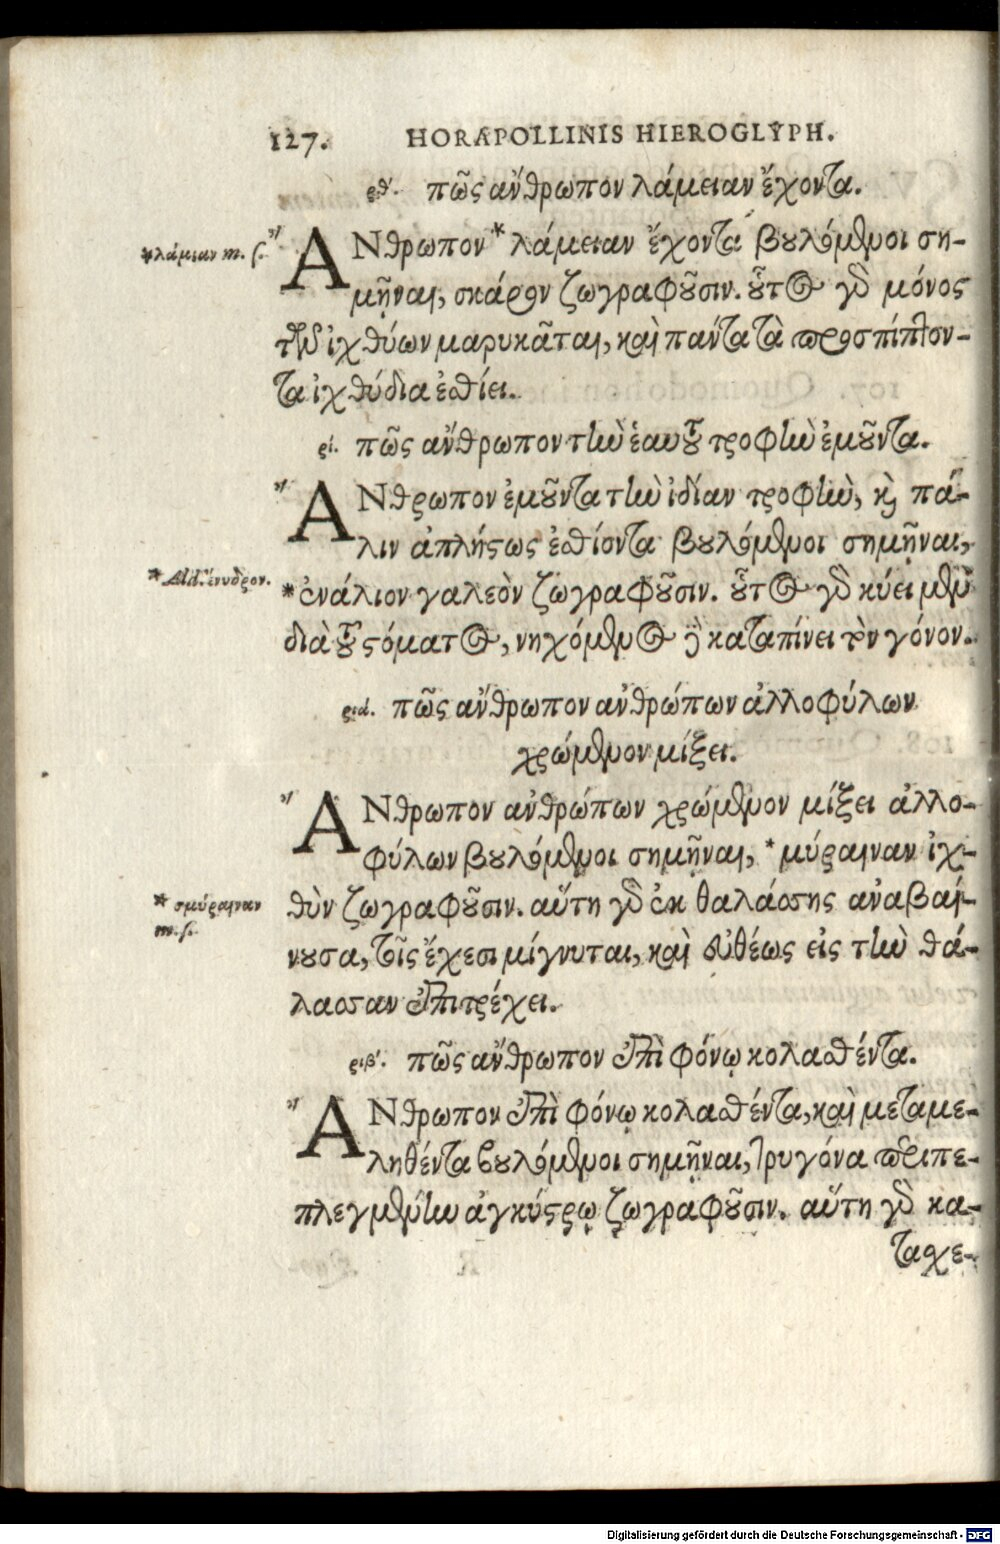 127. HORAPOLLINIS HIEROGLYPH.
ρθʹ. πῶς ἄνθρωπον λάμειαν ἔχοντα.
*λάμιαν m. s. ἌΝθρωπον * λάμειαν ἔχοντα βουλόμενοι ση-
μῆναι, σκάρον ζωγραφοῦσιν. οὗτος γὰρ μόνος
τῶν ἰχθύων μαρυκᾶται, καὶ πάντα τὰ προσπίπτον-
τα ἰχθύδια ἐσθίει.
ρί. πῶς ἄνθρωπον τὴν ἑαυτοῦ τροφὴν ἐμοῦντα.
ἌΝθρωπον ἐμοῦντα τὴν ἰδίαν τροφὴν, καὶ πά-
λιν ἀπλήστως ἐσθίοντα βουλόμενοι σημῆναι,
* Ald. ἔνυδρον. * ἐνάλιον γαλεὸν ζωγραφοῦσιν. οὗτος γὰρ κύει μὲν
διὰ τοῦ στόματος, νηχόμενος δὲ καταπίνει τὸν γόνον.
ρια. πῶς ἄνθρωπον ἀνθρώπων ἀλλοφύλων
χρώμενον μίξει.
ἌΝθρωπον ἀνθρώπων χρώμενον μίξει ἀλλο-
φύλων βουλόμενοι σημῆναι, * μύραιναν ἰχ-
* σμύραιναν θὺν ζωγραφοῦσιν. αὕτη γὰρ ἐκ θαλάσσης ἀναβαί-
m. s. νουσα, τοῖς ἔχεσι μίγνυται, καὶ εὐθέως εἰς τὴν θά-
λασσαν ἐπιτρέχει.
ριβʹ. πῶς ἄνθρωπον ἐπὶ φόνῳ κολασθέντα.
ἌΝθρωπον ἐπὶ φόνῳ κολασθέντα, καὶ μεταμε-
ληθέντα βουλόμενοι σημῆναι, τρυγόνα περιπε-
πλεγμένην ἀγκίστρῳ ζωγραφοῦσιν. αὕτη γὰρ κα-
τασχε-
Digitalisierung gefördert durch die Deutsche Forschungsgemeinschaft - DFG